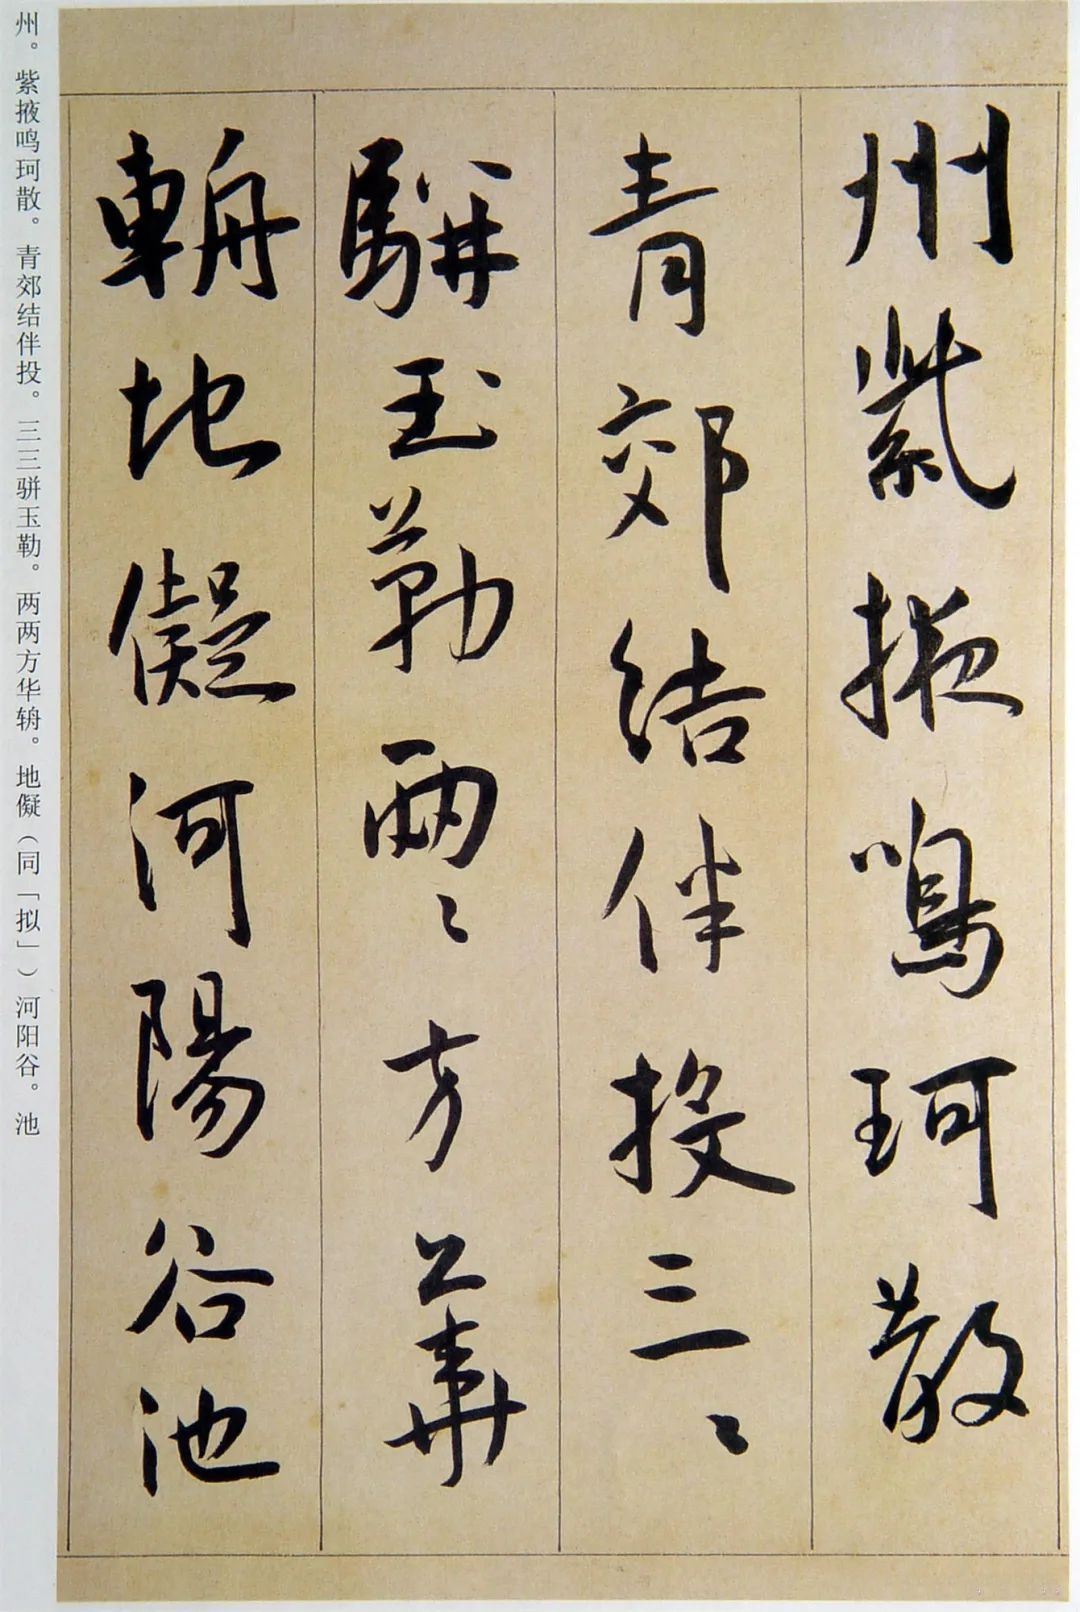 州紫掖鳴珂散
青郊結伴投三〻
駢玉勒兩〻方華
輈地儗河陽谷池
州。紫掖鸣珂散。青郊结伴投。三三骈玉勒。两两方华辀。地儗（同「拟」）河阳谷。池